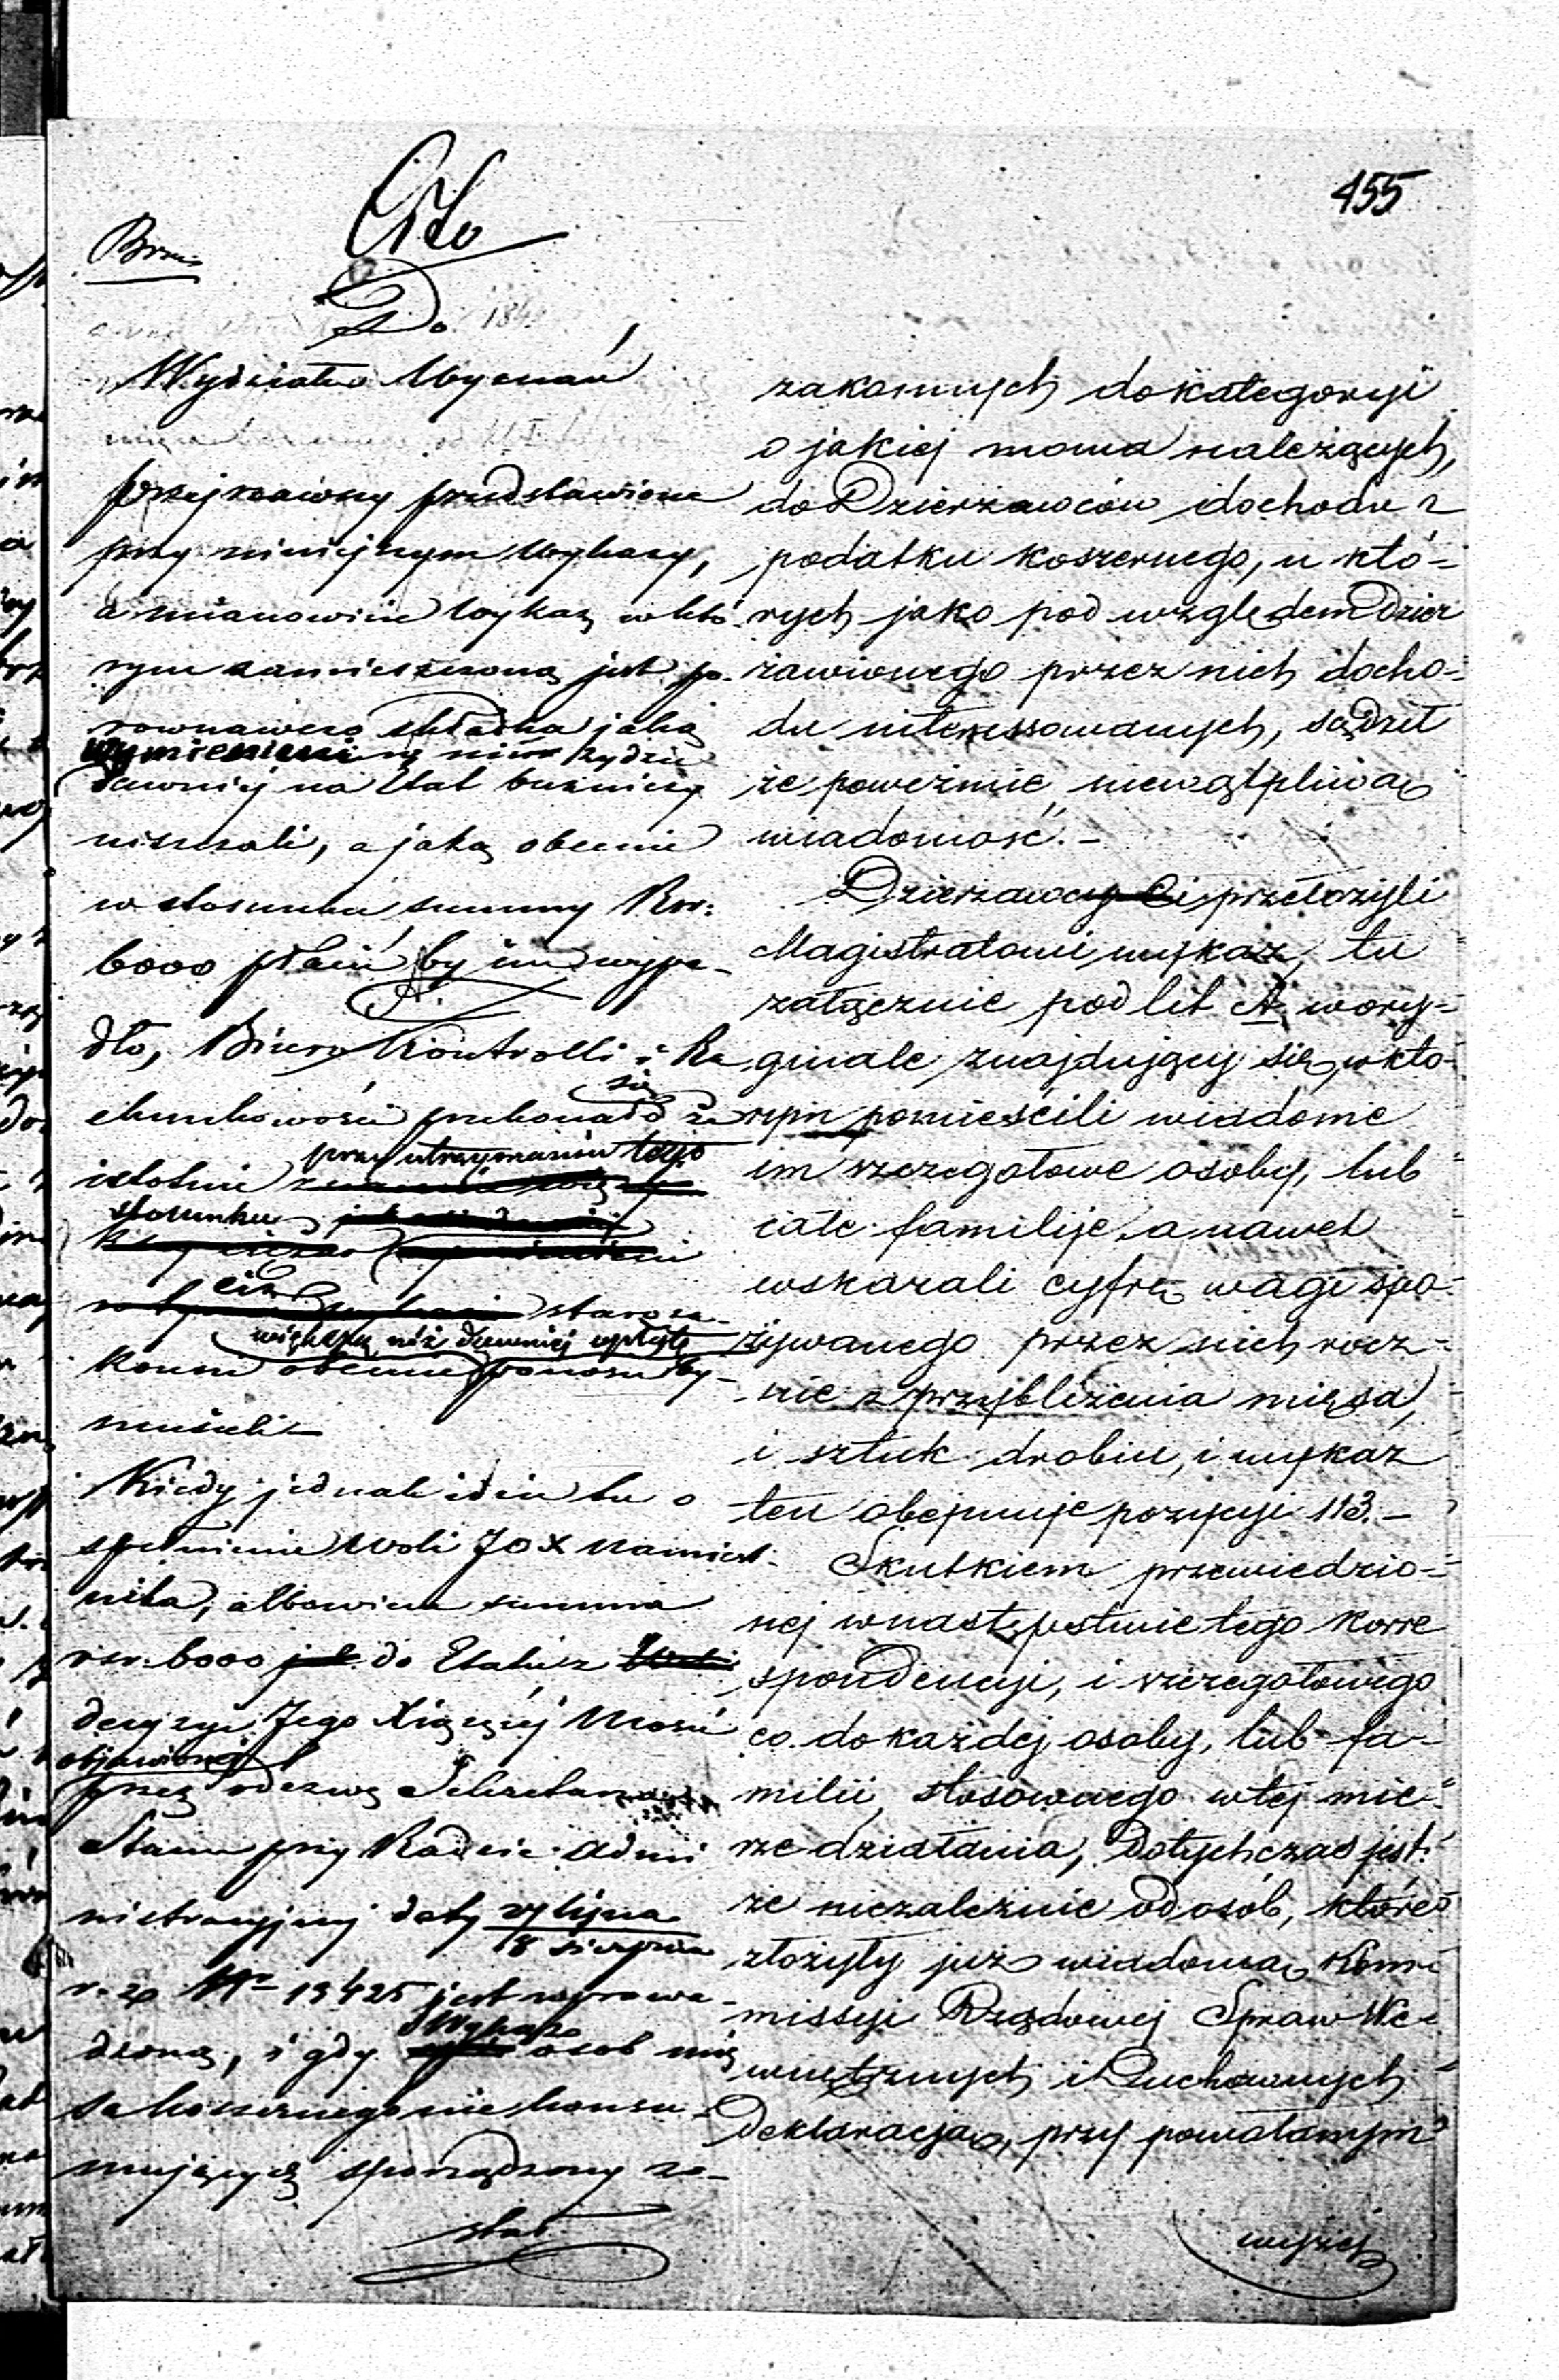 455
Cito
Do
Wydziału Wyznań
Przejrzawszy przedstawione
przy niniejszym Wykazy,
a mianowicie Wykaz w któ-
rym zamieszczoną jest po-
rownawczo składka jaką
wymienieni w nim Żydzi
dawniej na Etat bużniczy
uiszczali, a jaką obecnie
w stosunku summy Rsr:
6000 płacić by im wypa-
A.
dło, Biuro Kontrolli i Ra
chunkowości przekonało się że
istotnie przy utrzymaniu tego
stosunku
ciż starosa-
konni obecnie większą niż dawniej opłatę ponosić by
musieli –
Kiedy jednak idzie tu o
spełnienie Woli JOX Namiest-
nika, albowiem summa
rsr. 6000 do Etatu z
decyzyi Jego Xiążęcej Mości
objawionej
przez odezwę Sekretarza
Stanu przy Radzie Admi
nistracyjnej daty 27 lipca
8 sierpnia
r. z. Nr 19425 jest wprowa-
dzoną, i gdy Wykaz osob mię
sa koszernego nie konsu-
mujących sporządzony zo-
stał
zakonnych do kategoryi
o jakiej mowa należących,
do Dzierżawców dochodu z
podatku koszernego, u któ-
rych jako pod względem Dzier
żawionego przez nich docho-
du interessowanych, sądził
że poweźmie niewątpliwą
wiadomość. –
Dzierzawcy Ci przełożyli
Magistratowi wykaz, tu
załącznie pod lit A, w ory-
ginale znajdujący się, w któ-
rym pomieścili wiadome
im szczegółowe osoby, lub
całe familije, a nawet
wskazali cyfrę wagi spo-
żywanego przez nich rocz-
nie z przybliżenia mięsa,
i sztuk drobiu, i wykaz
ten obejmuje pozycyi 113. –
Skutkiem przewiedzio-
nej w następstwie tego korre
spondencyi, i szczegółowego
co do każdej osoby, lub fa-
milii stosownego w tej mie-
rze działania, Dotychczas jest:
że niezależnie od osób, które
złożyły już wiadomą Kom-
missyi Rządowej Spraw We-
wnętrznych i Duchownych
Deklaracją, przy powołanym
wyżej